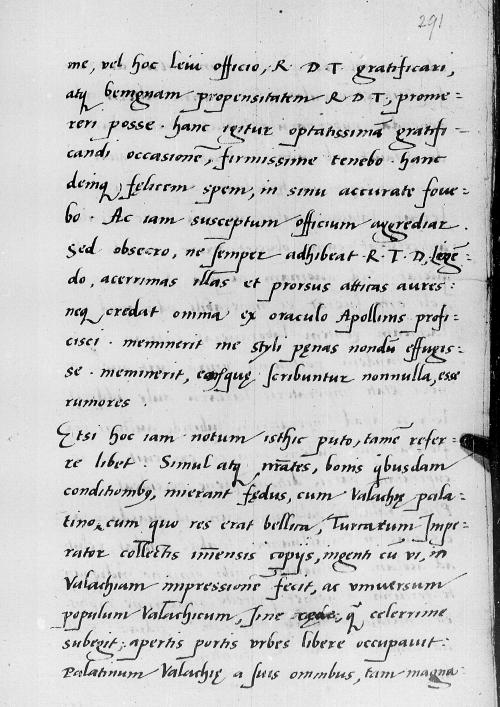 291
me, vel hoc levi officio, R. D T gratificari,
atq benignam propensitatem R D T, prome=
reri posse. hanc igitur optatissimā gratifi-
candi occasionē, firmissime tenebo. hanc
deinq, felicem spem, in sinu accurate fove=
bo. Ac iam susceptum officium aggrediar.
Sed obsecro, ne semper adhibeat R. T. D. legē=
do, acerrimas illas et prorsus atticas aures:
neq credat omnia ex oraculo Apollinis profi=
cisci. meminerit me styli pęnas nondū effugis=
se. meminerit, scribuntur nonnulla, esse
rumores.
Etsi hoc iam notum isthic puto, tamē refer=
re libet. Simul atq bonis qbusdam
conditionibȝ, inierant fędus, cum Valachię pala=
tino, cum quo res erat bellica, Turcarum Impe=
rator collectis imēnsis copijs, ingenti cū vi, in
Valachiam impressionē fecit, ac universum
populum Valachicum, sine q celerrime
subegit, apertis portis urbes libere occupavit:
Palatinum Valachię a suis omnibus, tam magna